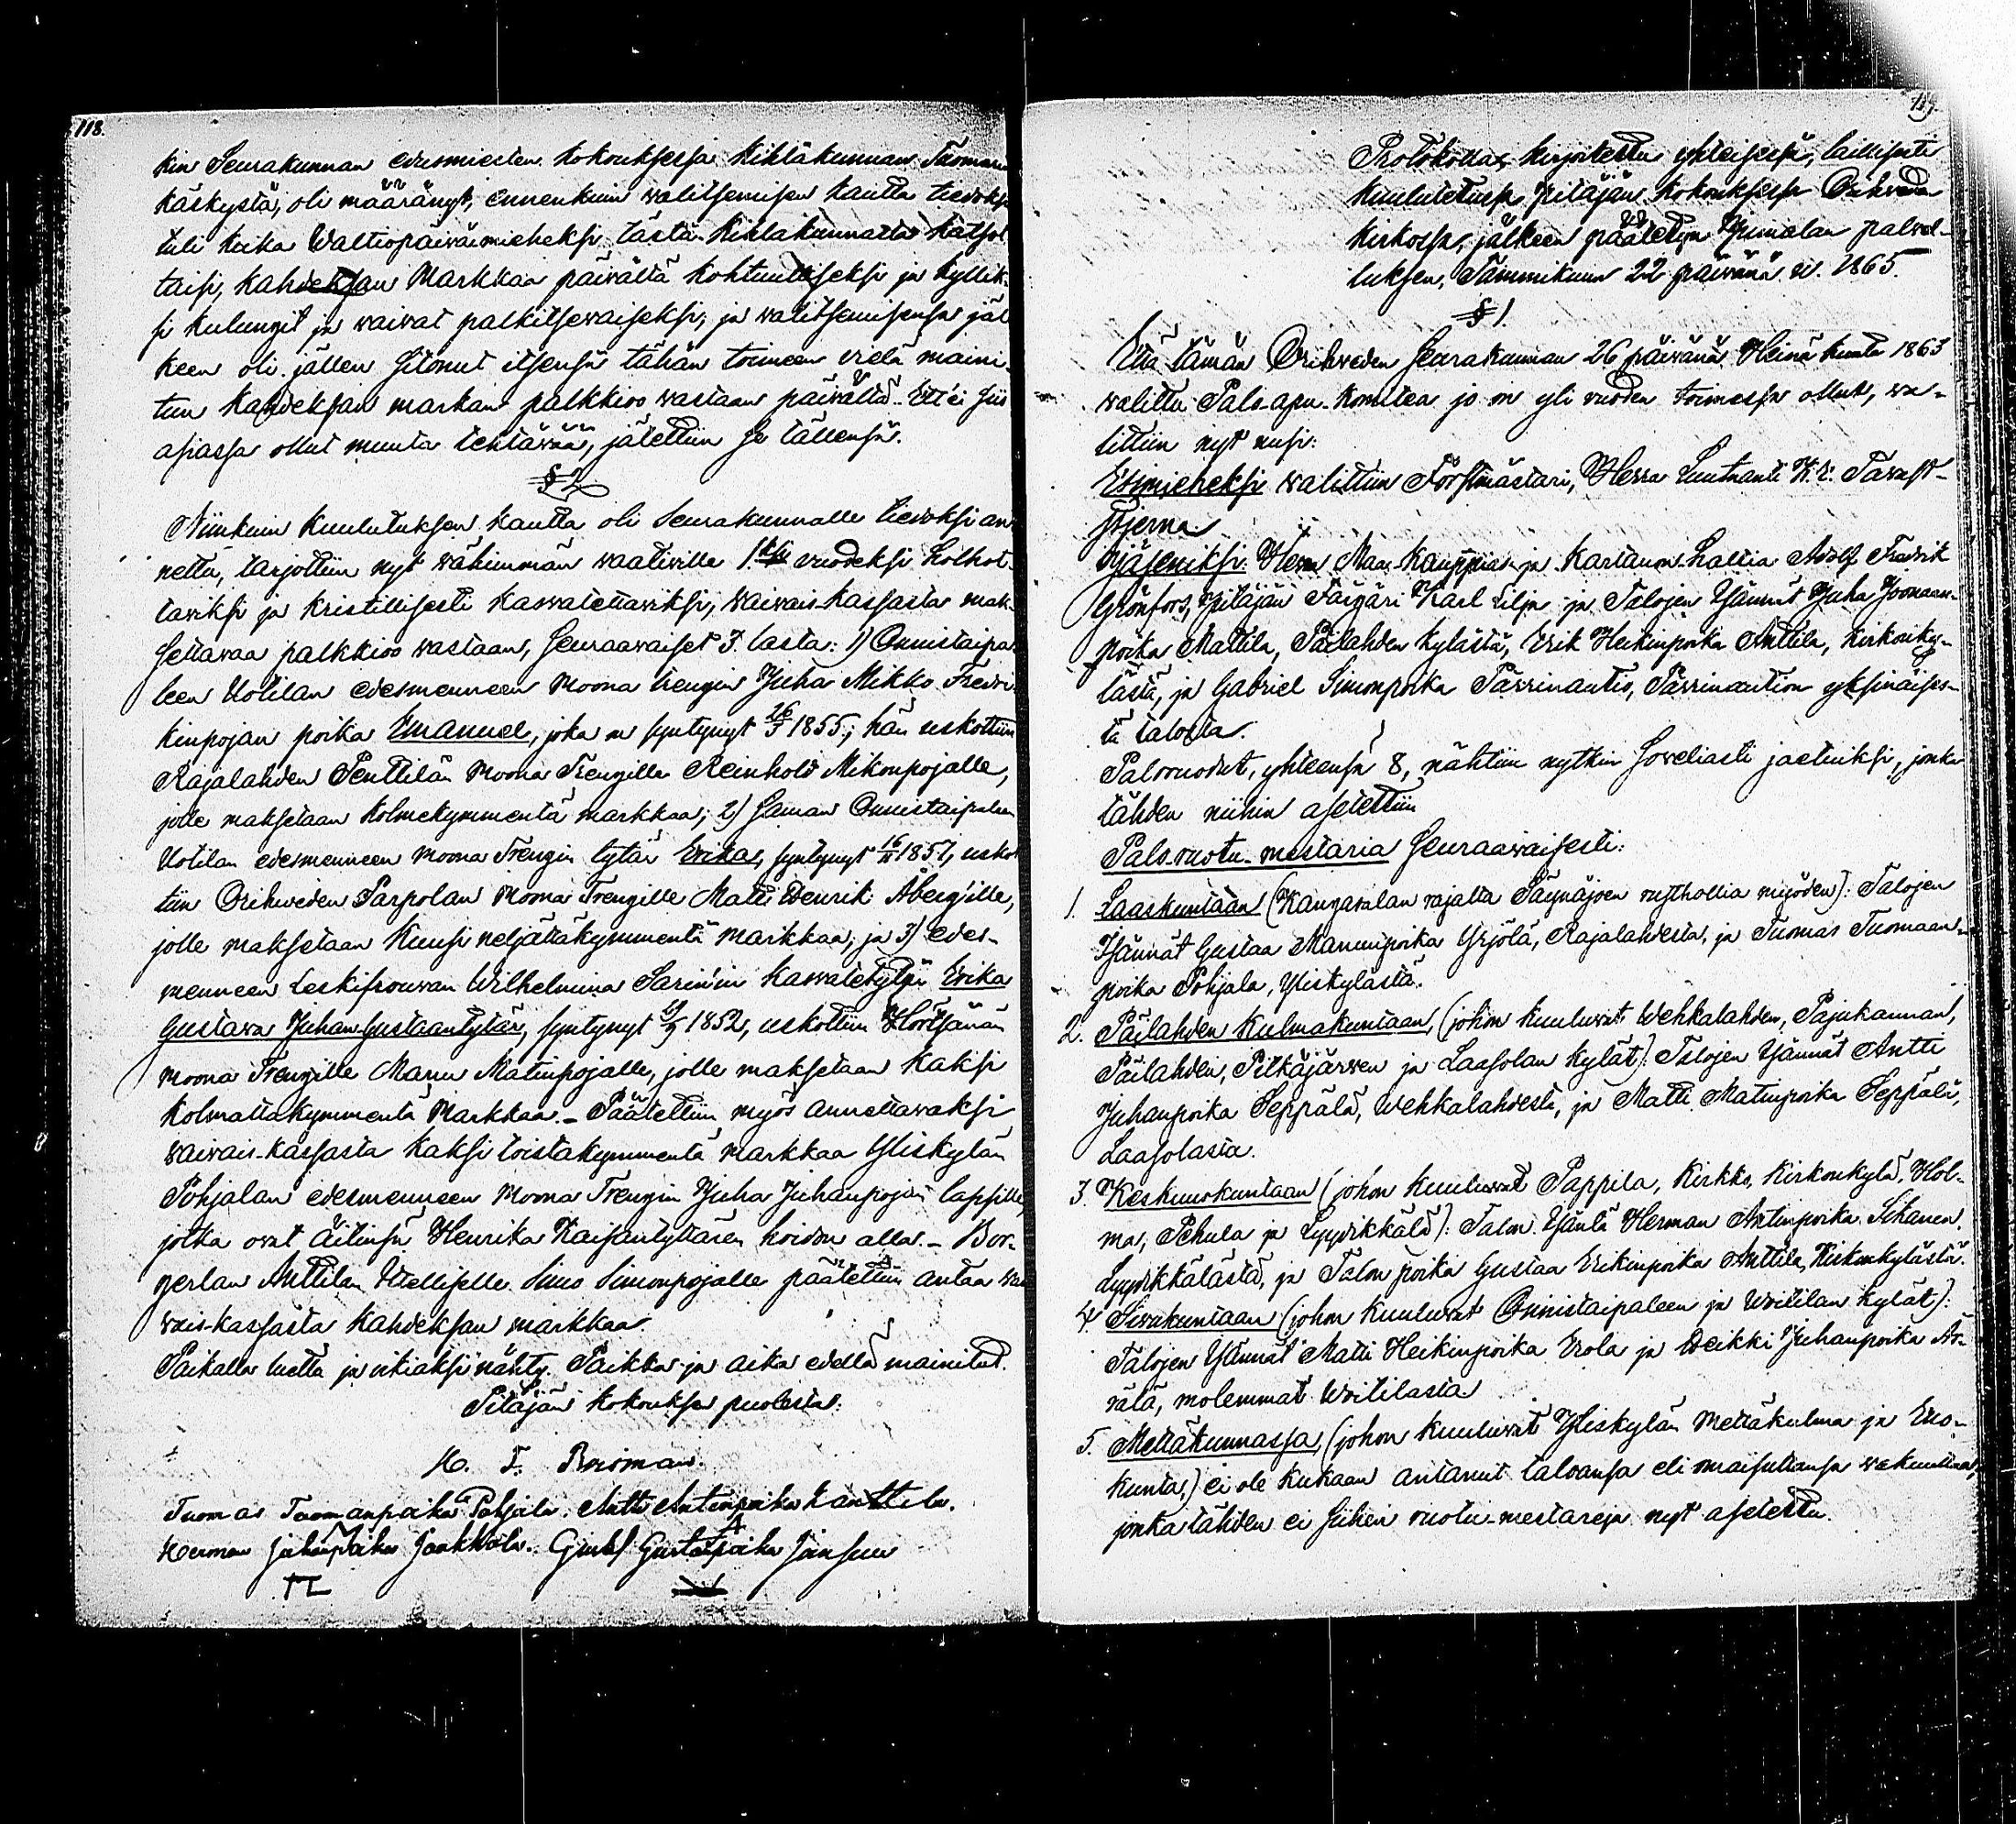 118.
kin Seurakunnan edusmiesten kokouksessa Kihlakunnan Tuomarin
käskystä, oli määrännyt, ennenkuin walitsemisen kautta tiedoksi
tuli kuka Waltiopäiwämieheksi tästä kihlakunnasta katsot-
taisi, kahdeksan Markkaa päiwältä kohtuulliseksi ja kyllik-
si kulungit ja waiwat palkitsewaiseksi; ja walitsemisensa jäl-
keen oli jällen sitonut itsensä tähän toimeen wielä maini-
tun kahdeksan markan palkkioo wastaan päiwältä. Ett'ei siis
asiassa ollut muuta tehtäwää, jätettiin se tällensä.
§ 2
Niinkuin kuulutuksen kautta oli Seurakunnalle tiedoksi an-
nettu, tarjottiin nyt wähimmän waatiwille 1 wuodeksi holhot-
tawiksi ja kristillisesti kaswatettawiksi, waiwais-kassasta mak-
settawaa palkkioo wastaan, seuraawaiset 3 lasta: 1) Onnistaipa-
leen Uotilan edesmenneen Moona trengin Juha Mikko Fredri-
kinpojan poika Emanuel, joka on syntynyt 26/3 1855; hän uskottiin
Rajalahden Penttilän Moona Trengille Reinhold Mikonpojalle,
jolle maksetaan kolmekymmentä markkaa; 2) Saman Onnistaipaleen
Uotilan edesmenneen Moona Trengin tytär Erika, syntynyt 16/11 1857, uskot-
tiin Orihweden Parpolan Moona Trengille Matti Henrik Åberg'ille,
jolle maksetaan kuusi neljättäkymmentä markkaa; ja 3) edes-
menneen Leskifrouwan Wilhelmina Sarinin kaswatetyttö Erika
Gustawa Juhan Gustaantytär, syntynyt 1852, uskottiin Hörtsänän
Moona Trengille Manu Matinpojalle, jolle maksetaan kaksi
kolmattakymmentä Markkaa. - Päätettiin myös annettawaksi
waiwais-kassasta kaksi toistakymmentä markkaa Yliskylän
Pohjalan edesmenneen Moona Trengin Juha Juhanpojan lapsille,
jotka owat äitinsä Henrika Kaisantyttären hoidon alla. - Bor-
gerlan Anttilan Itselliselle Simo Simonpojalle päätettiin antaa wai-
wais-kassasta kahdeksan markkaa.
Paikalla luettu ja oikiaksi nähty. Paikka ja aika edellä mainitut.
Pitäjän kokouksen puolesta:
H. F. Roisman.
Tuomas Tuomanpoika Pohjala. Antti Antinpoika Kanttila.
Herman Juhanpoika Jaakkola. Gustaf Gustafpoika
119.
Protokolla, kirjoitettu yhteisessä, laillisesti
kuulutetussa Pitäjän kokouksessa Orihweden
kirkossa, jälkeen päätetyn Jumalan palwel-
luksen, Tammikuun 22 päiwänä w. 1865.
§ 1.
Että tämän Orihweden Seurakunnan 26 päiwänä Heinä kuuta 1863
walittu Palo-apu-Komitea jo on yli wuoden toimessa ollut, wa-
littiin nyt uusi:
Esimieheksi walittiin Förstmästari, Herra Luutnantti K. E. Tawast-
stjerna.
Jäseniksi: Herra Maa-Kauppias ja Kartanon-haltia Adolf Fredrik
Grönfors, Pitäjän Färjäri Karl Lilja ja Talojen Isännät Juha Joonaan-
poika Mattila, Päilahden kylästä, Erik Heikinpoika Anttila, Kirkonky-
lästä, ja Gabriel Simonpoika Pärrinautio, Pärrinaution yksinäises-
tä talosta.
Paloruodut, yhteensä 8, nähtiin nytkin soweliasti jaetuiksi, jonka
tähden niihin asetettiin
Palo-ruotu-mestaria Seuraawaisesti:
1. Laaskuntaan (Kangasalan rajalta Säynäjoen rusthollia myöden): Talojen
Isännät Gustaa Manunpoika Yrjölä, Rajalahdesta, ja Tuomas Tuomaan-
poika Pohjala, Yliskylästä.
2. Päilahden kulmakuntaan, (johon kuuluwat Wehkalahden, Pajukannan,
Päilahden, Pitkäjärwen ja Laasolan kylät): Talojen Isännät Antti
Juhanpoika Seppälä, Wehkalahdesta, ja Matti Matinpoika Seppälä,
Laasolasta.
3. Keskuuskuntaan (johon kuuluwat Pappila, Kirkko, Kirkonkylä, Hol-
ma, Pehula ja Lyydikkälä): Talon Isäntä Herman Antinpoika Sihanen,
Lyydikkälästä, ja Talon poika Gustaa Erikinpoika Anttila, Kirkonkylästä.
4. Siwukuntaan (johon kuuluwat Onnistaipaleen ja Woitilan kylät):
Talojen Isännät Matti Heikinpoika Erola ja Heikki Juhanpoika Är-
rälä, molemmat Woitilasta.
5. Mettäkunnassa, (johon kuuluwat Yliskylän Mettäkulma ja Eno-
kunta,) ei ole kukaan antanut taloansa eli omaisuttansa wakuuttaa,
jonka tähden ei siihen ruotu-mestareja nyt asetettu.